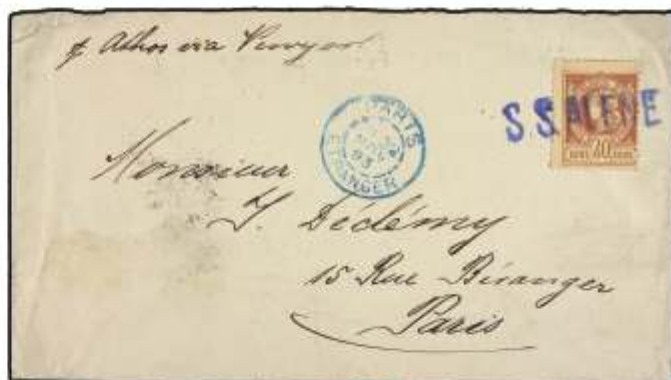 p Athos via Newyork
S.S. ALENE
PARIS
93
ETRANGER
40
Monsieur
Y. Dédémy
15 Rue Béranger
Paris